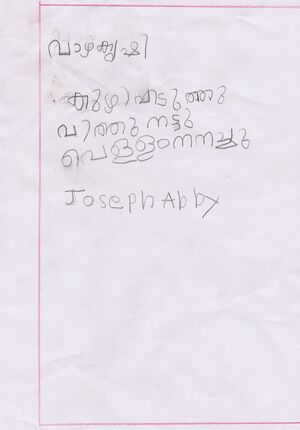 വാഴകൃഷി
കുഴി എടുത്തു
വിത്തു നട്ടു
വെള്ളം നനച്ചു
Joseph Abby